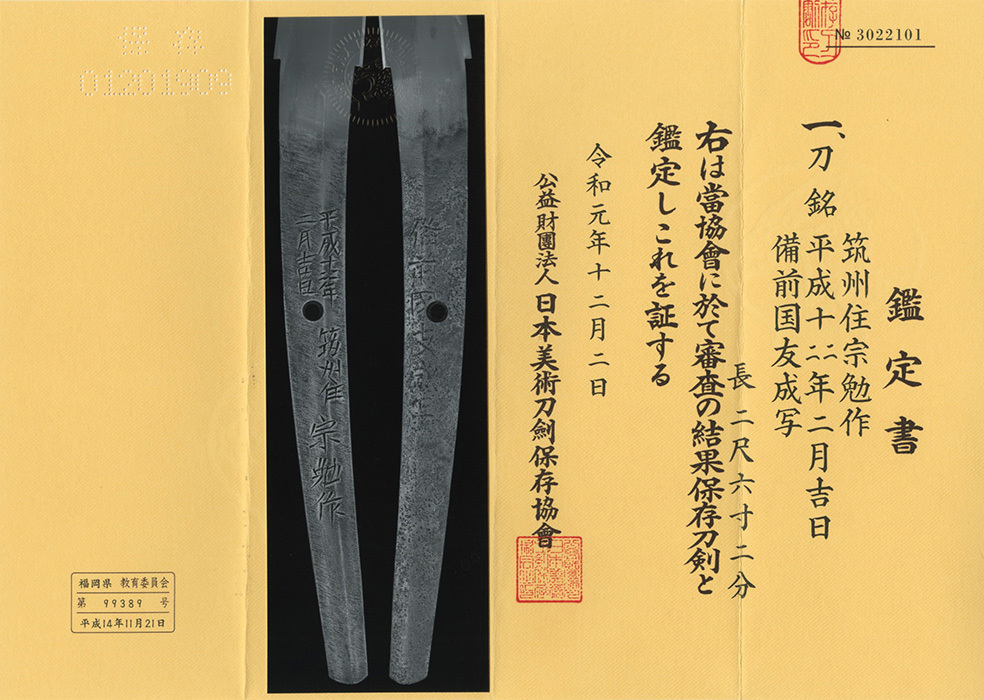 № 3022101
鑑定書
一、刀 銘
筑州住宗勉作
平成十二二年二月吉日
備前国友成写
長 二尺六寸二分
右は當協會に於て審査の結果保存刀剣と
鑑定しこれを証する
令和元年十二月二日
公益財團法人 日本美術刀劍保存協會
筑州住 宗勉作
二月吉日
保存
01201909
福岡県 教育委員会
第 99389 号
平成14年11月21日